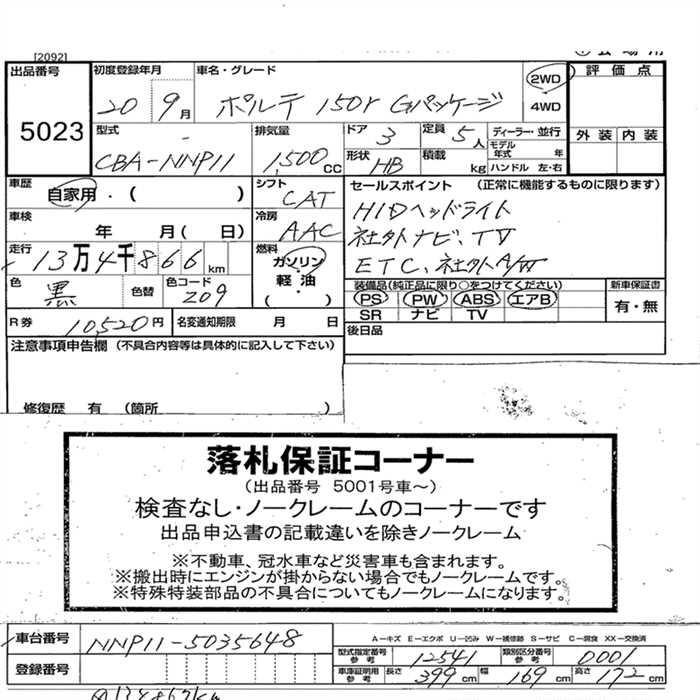 [2092]
出品番号 5023
初度登録年月 20 9月
車名・グレード ポルテ 150r Gパッケージ
2WD
4WD
評価点
外装 内装
型式 CBA-NNP11
排気量 1,500 CC
ドア 3
形状 HB
定員 5人
積載 kg
ディーラー・並行
モデル年式 年
ハンドル 左・右
車歴 自家用・( )
シフト CAT
車検 年 月( 日)
冷房 AAC
走行 13万4千866km
燃料 ガソリン・軽油・( )
色 黒 色替 色コード 209
R券 10,520円 名変通知期限 月 日
セールスポイント (正常に機能するものに限ります)
HIDヘッドライト
社外ナビ、TV
ETC、社外A/W
装備品(純正品に限り○をつけてください) 新車保証書
PS PW ABS エアB 有・無
SR ナビ TV
後日品
注意事項申告欄 (不具合内容等は具体的に記入して下さい)
修復歴 有 (箇所 )
落札保証コーナー
(出品番号 5001号車~)
検査なし・ノークレームのコーナーです
出品申込書の記載違いを除きノークレーム
※不動車、冠水車など災害車も含まれます。
※搬出時にエンジンが掛からない場合でもノークレームです。
※特殊特装部品の不具合についてもノークレームになります。
車台番号 NNP11-5035648
登録番号
A-キズ E-エクボ U-凹み W-補修跡 S-サビ C-腐食 XX-交換済
型式指定番号 参考 12541 類別区分番号 参考 0001
車庫証明用 参考 長さ 399cm 幅 169cm 高さ 172cm